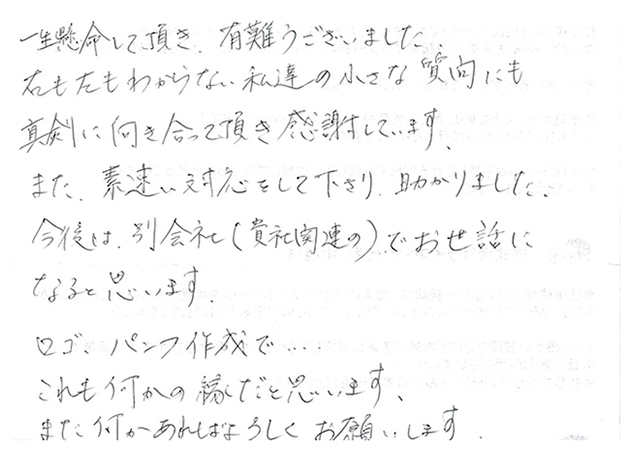 一生懸命して頂き、有難うございました
右も左もわからない私達の小さな質問にも
真剣に向き合って頂き感謝しています、
また、素速い対応をして下さり、助かりました、
今後は、別会社(貴社関連の)でお世話に
なると思います、
ロゴ、パンフ作成で…
これも何かの縁だと思います、
また何かあればよろしくお願いします、